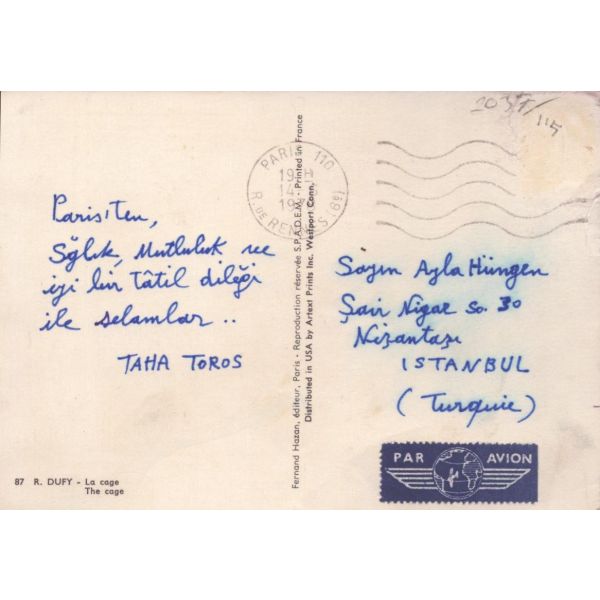 2035/115
PARIS 110
19H
14
19
R. DE RENNES (6e)
Paris'ten,
Sağlık, Mutluluk ve
iyi bir Tâtil dileği
ile selamlar ..
TAHA TOROS
87 R. DUFY - La cage
The cage
Fernand Hazan, éditeur, Paris - Reproduction réservée S.P.A.D.E.M. - Printed in France
Distributed in USA by Artext Prints Inc. Westport Conn.
Sayın Ayla Hüngen
Şair Nigar So. 30
Nişantaşı
ISTANBUL
(Turquie)
PAR AVION